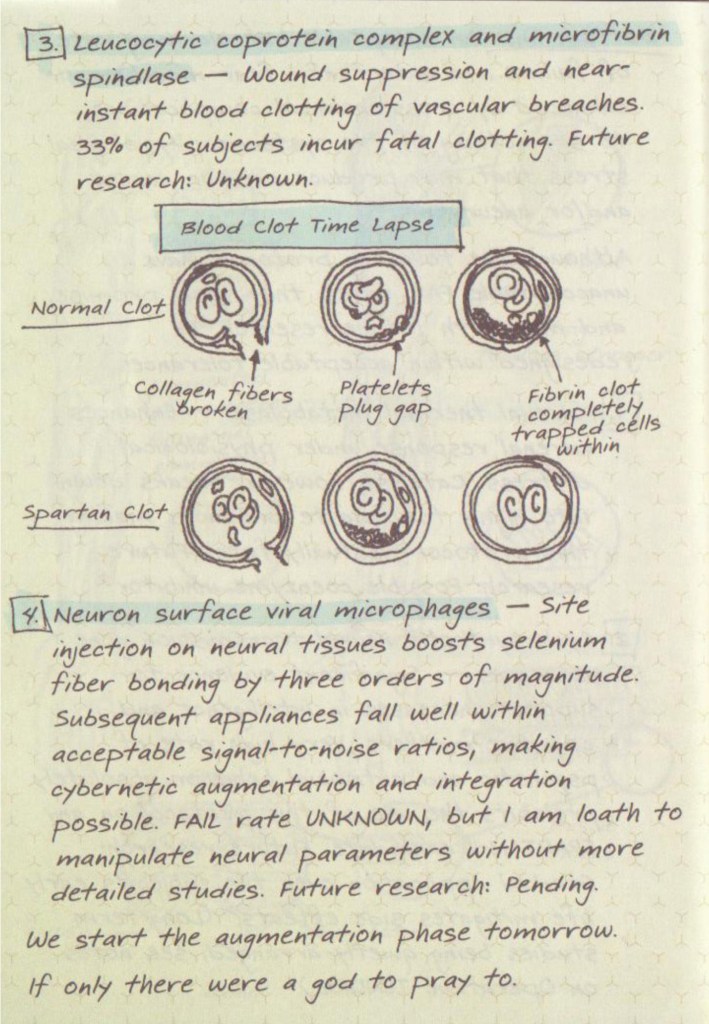 3. Leucocytic coprotein complex and microfibrin
spindlase — Wound suppression and near-
instant blood clotting of vascular breaches.
33% of subjects incur fatal clotting. Future
research: Unknown.
Blood Clot Time Lapse
Normal Clot
Collagen fibers
broken
Platelets
plug gap
Fibrin clot
completely
trapped cells
within
Spartan Clot
4. Neuron surface viral microphages — Site
injection on neural tissues boosts selenium
fiber bonding by three orders of magnitude.
Subsequent appliances fall well within
acceptable signal-to-noise ratios, making
cybernetic augmentation and integration
possible. FAIL rate UNKNOWN, but I am loath to
manipulate neural parameters without more
detailed studies. Future research: Pending.
We start the augmentation phase tomorrow.
If only there were a god to pray to.